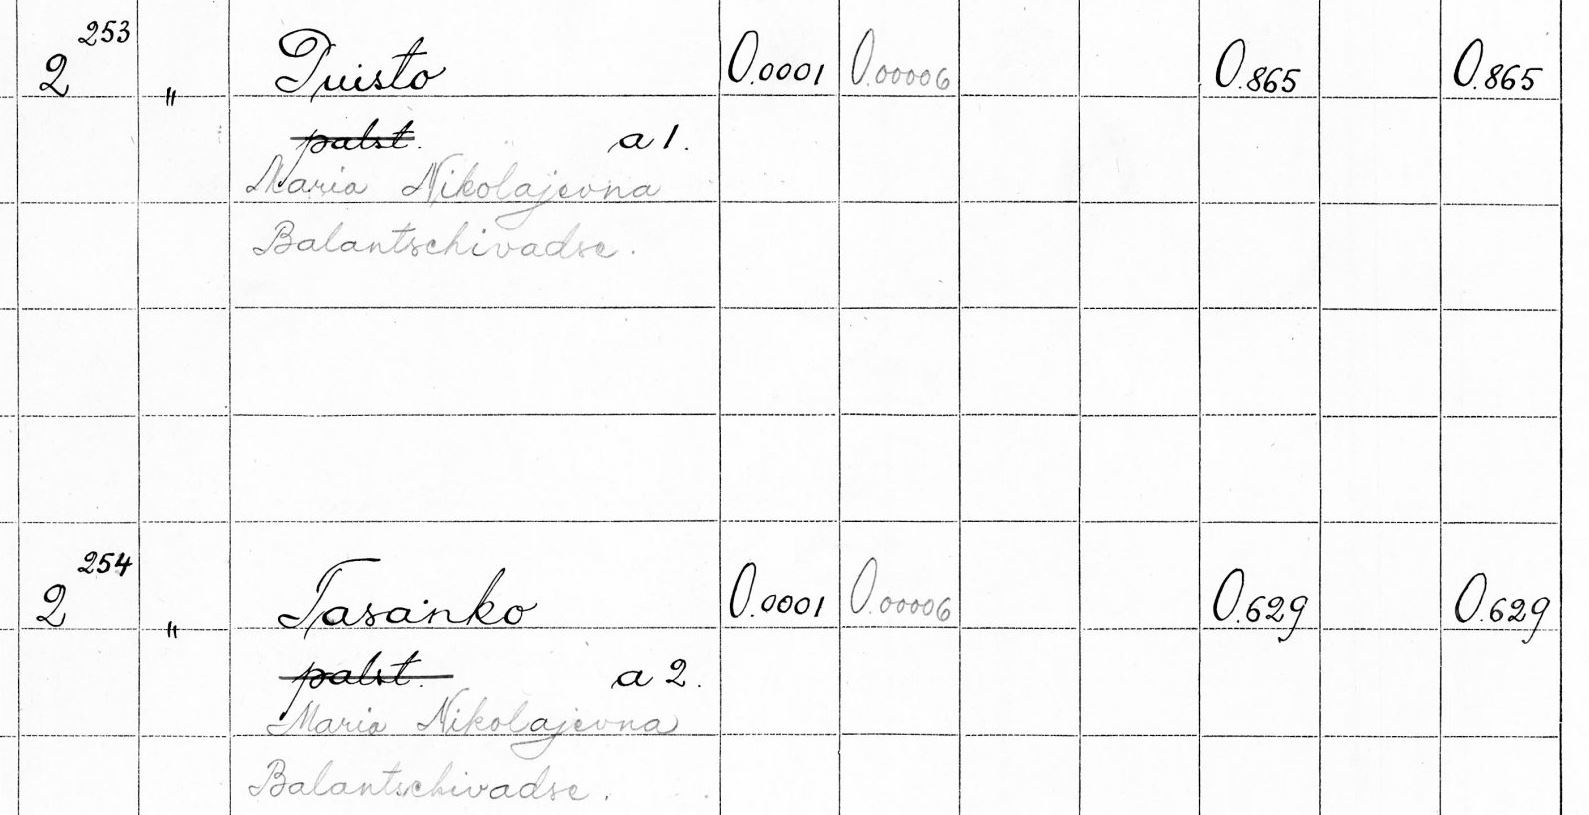 2 253 " Puisto 0.0001 0.00006 0.865 0.865
palst. a 1.
Maria Nikolajevna
Balantschivadse.
2 254 " Tasanko 0.0001 0.00006 0.629 0.629
palst. a 2.
Maria Nikolajevna
Balantschivadse.